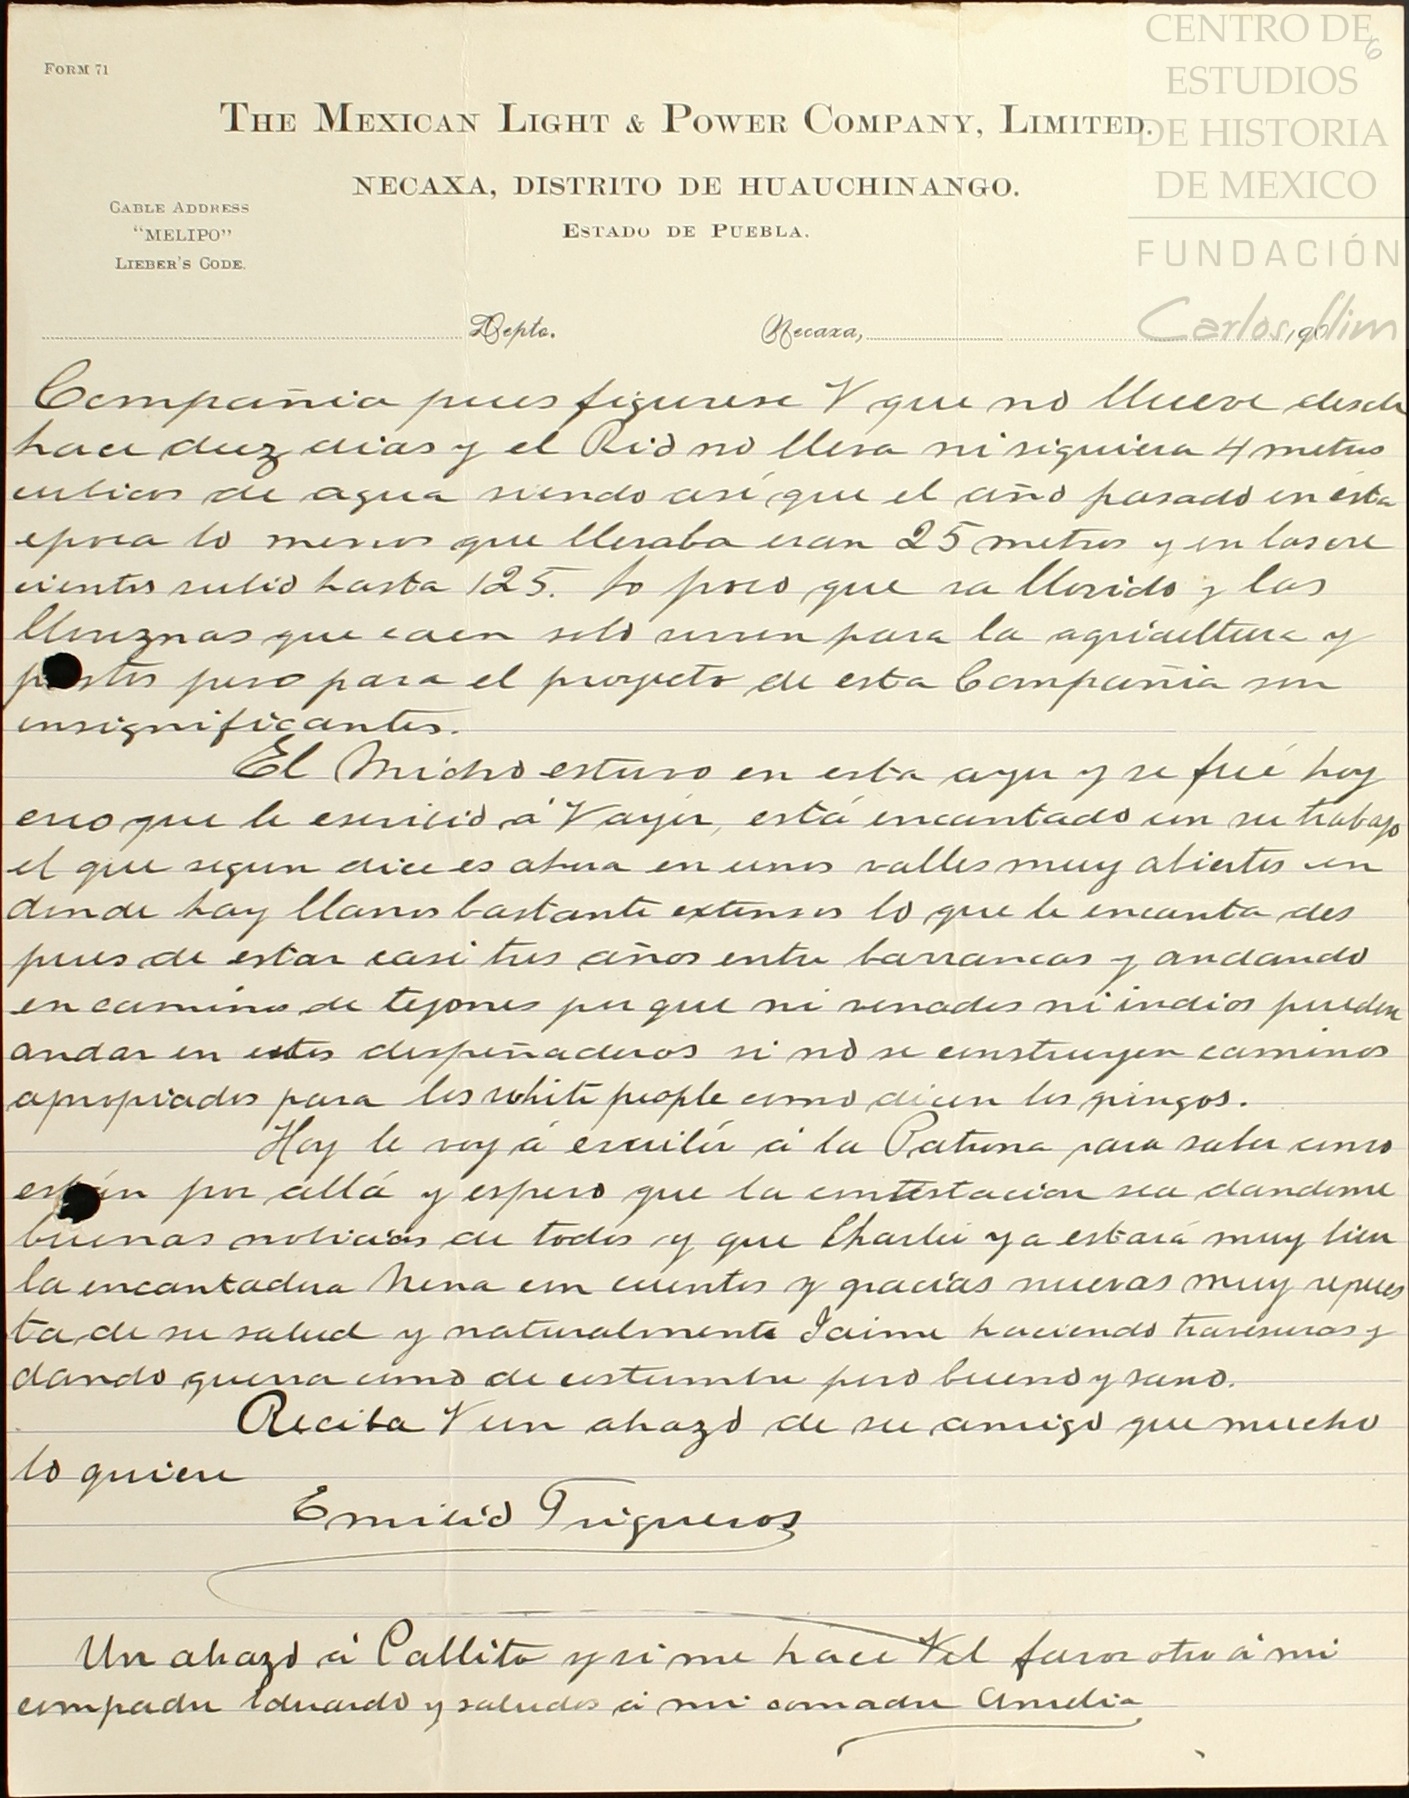 CENTRO DE
ESTUDIOS
DE HISTORIA
DE MEXICO
FUNDACIÓN
Carlos Slim
6
FORM 71
THE MEXICAN LIGHT & POWER COMPANY, LIMITED.
NECAXA, DISTRITO DE HUAUCHINANGO.
ESTADO DE PUEBLA.
CABLE ADDRESS
"MELIPO"
LIEBER'S CODE.
Depto. Necaxa, 190
Compañia pues figurese V que no llueve desde
hace diez dias y el Rio no lleva ni siquiera 4 metros
cubicos de agua siendo así que el año pasado en ésta
epoca lo menos que llevaba eran 25 metros y en las cre
cientes subió hasta 125. Lo poco que ha llovido y las
lloviznas que caen solo sirven para la agricultura y
pastos pero para el proyecto de esta Compañia son
insignificantes.
El Micho estuvo en esta ayer y se fué hoy
creo que le escribió á V ayer, está encantado con su trabajo
el que segun dice es ahora en unos valles muy abiertos en
donde hay llanos bastante extensos lo que le encanta des
pues de estar casi tres años entre barrancas y andando
en caminos de tejones por que ni venados ni indios pueden
andar en estos despeñaderos si no se construyen caminos
apropiados para los white people como dicen los gringos.
Hoy le voy á escribir á la Patrona para saber como
están por allá y espero que la contestacion sea dandome
buenas noticias de todos y que Charlie ya estará muy bien
la encantadora Nena con cuentos y gracias nuevas muy repues
ta de su salud y naturalmente Jaime haciendo travesuras y
dando guerra como de costumbre pero bueno y sano.
Reciba V un abazo de su amigo que mucho
lo quiere
Emilio Trigueros
Un abazo á Callito y si me hace V el favor otro á mi
compadre Eduardo y saludos á mi comadre Amelia